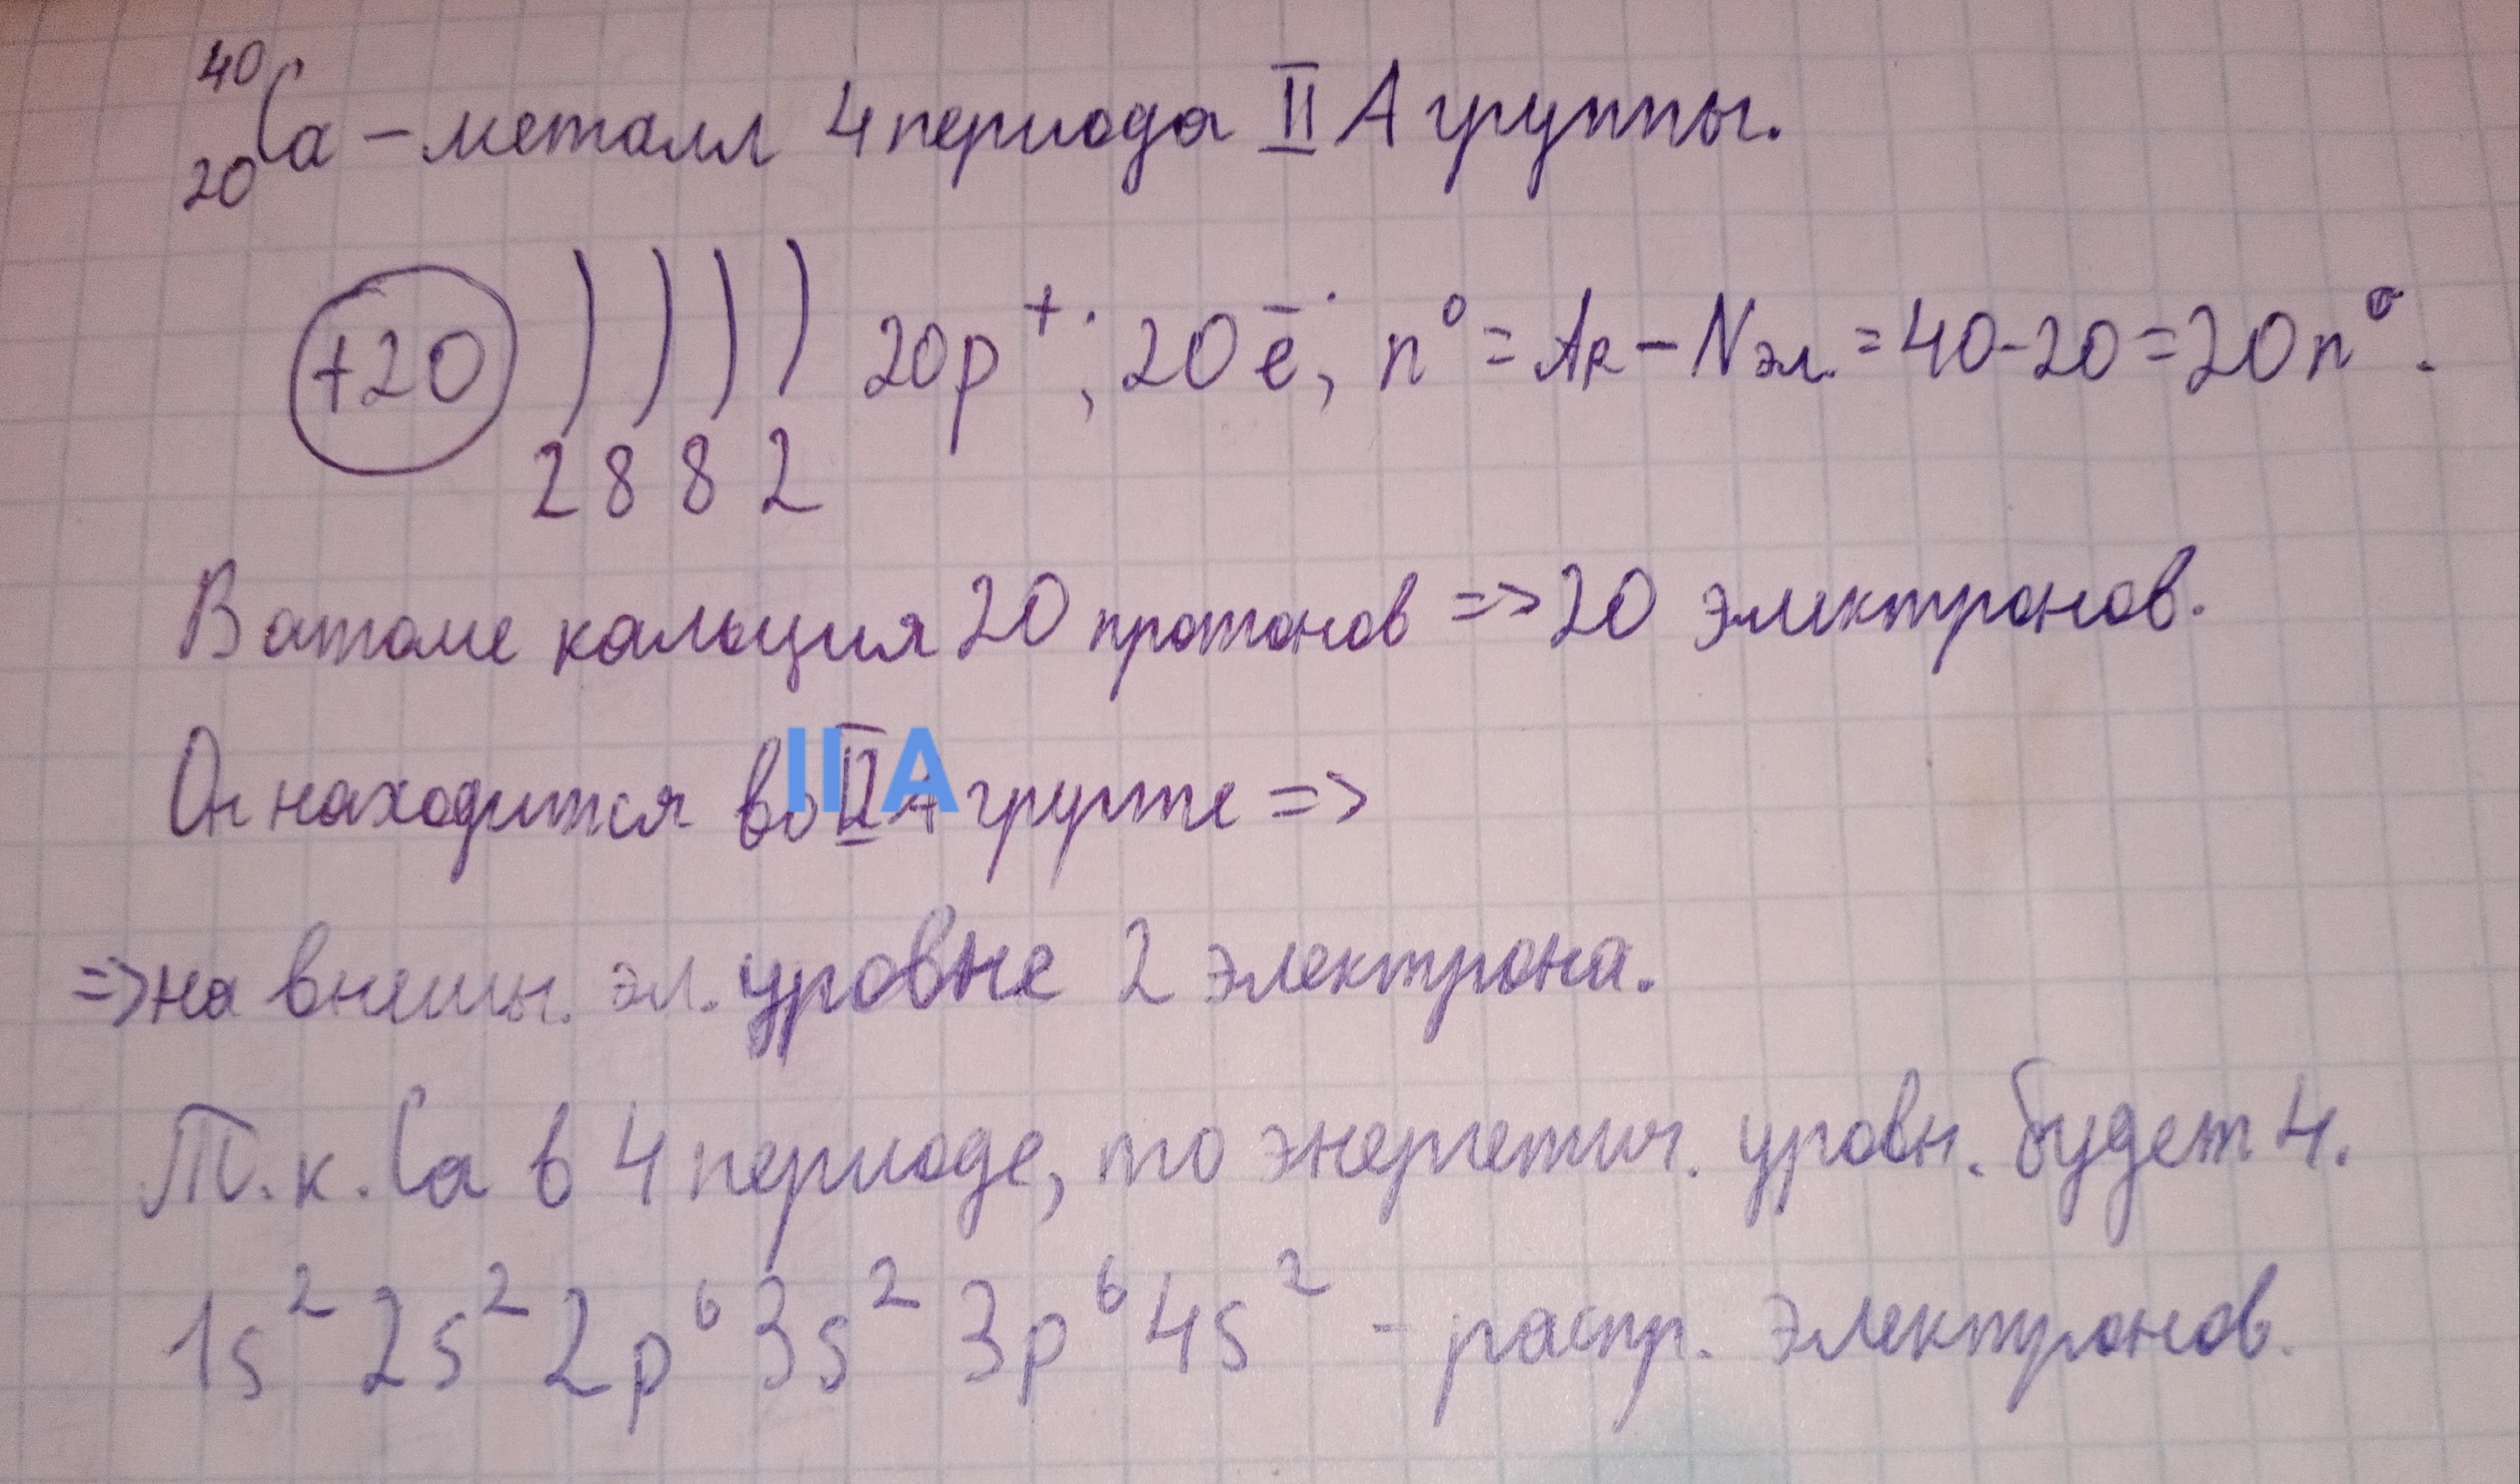 ⁴⁰₂₀Ca – металл 4 периода II А группы.
+20 ) ) ) ) 20p⁺; 20ē; n⁰ = Ar – Nэл. = 40-20 = 20n⁰.
2 8 8 2
В атоме кальция 20 протонов => 20 электронов.
Он находится во II А группе =>
II А
=> на внешн. эл. уровне 2 электрона.
Т.к. Ca в 4 периоде, то энергетич. уровн. будет 4.
1s² 2s² 2p⁶ 3s² 3p⁶ 4s² - распр. электронов.